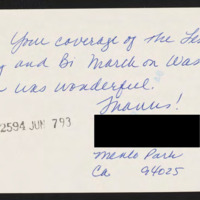 You coverage of the Les
y and Bi March on Was
n was wonderful.
Thanks!
2594 JUN 793
Menlo Park
Ca 94025